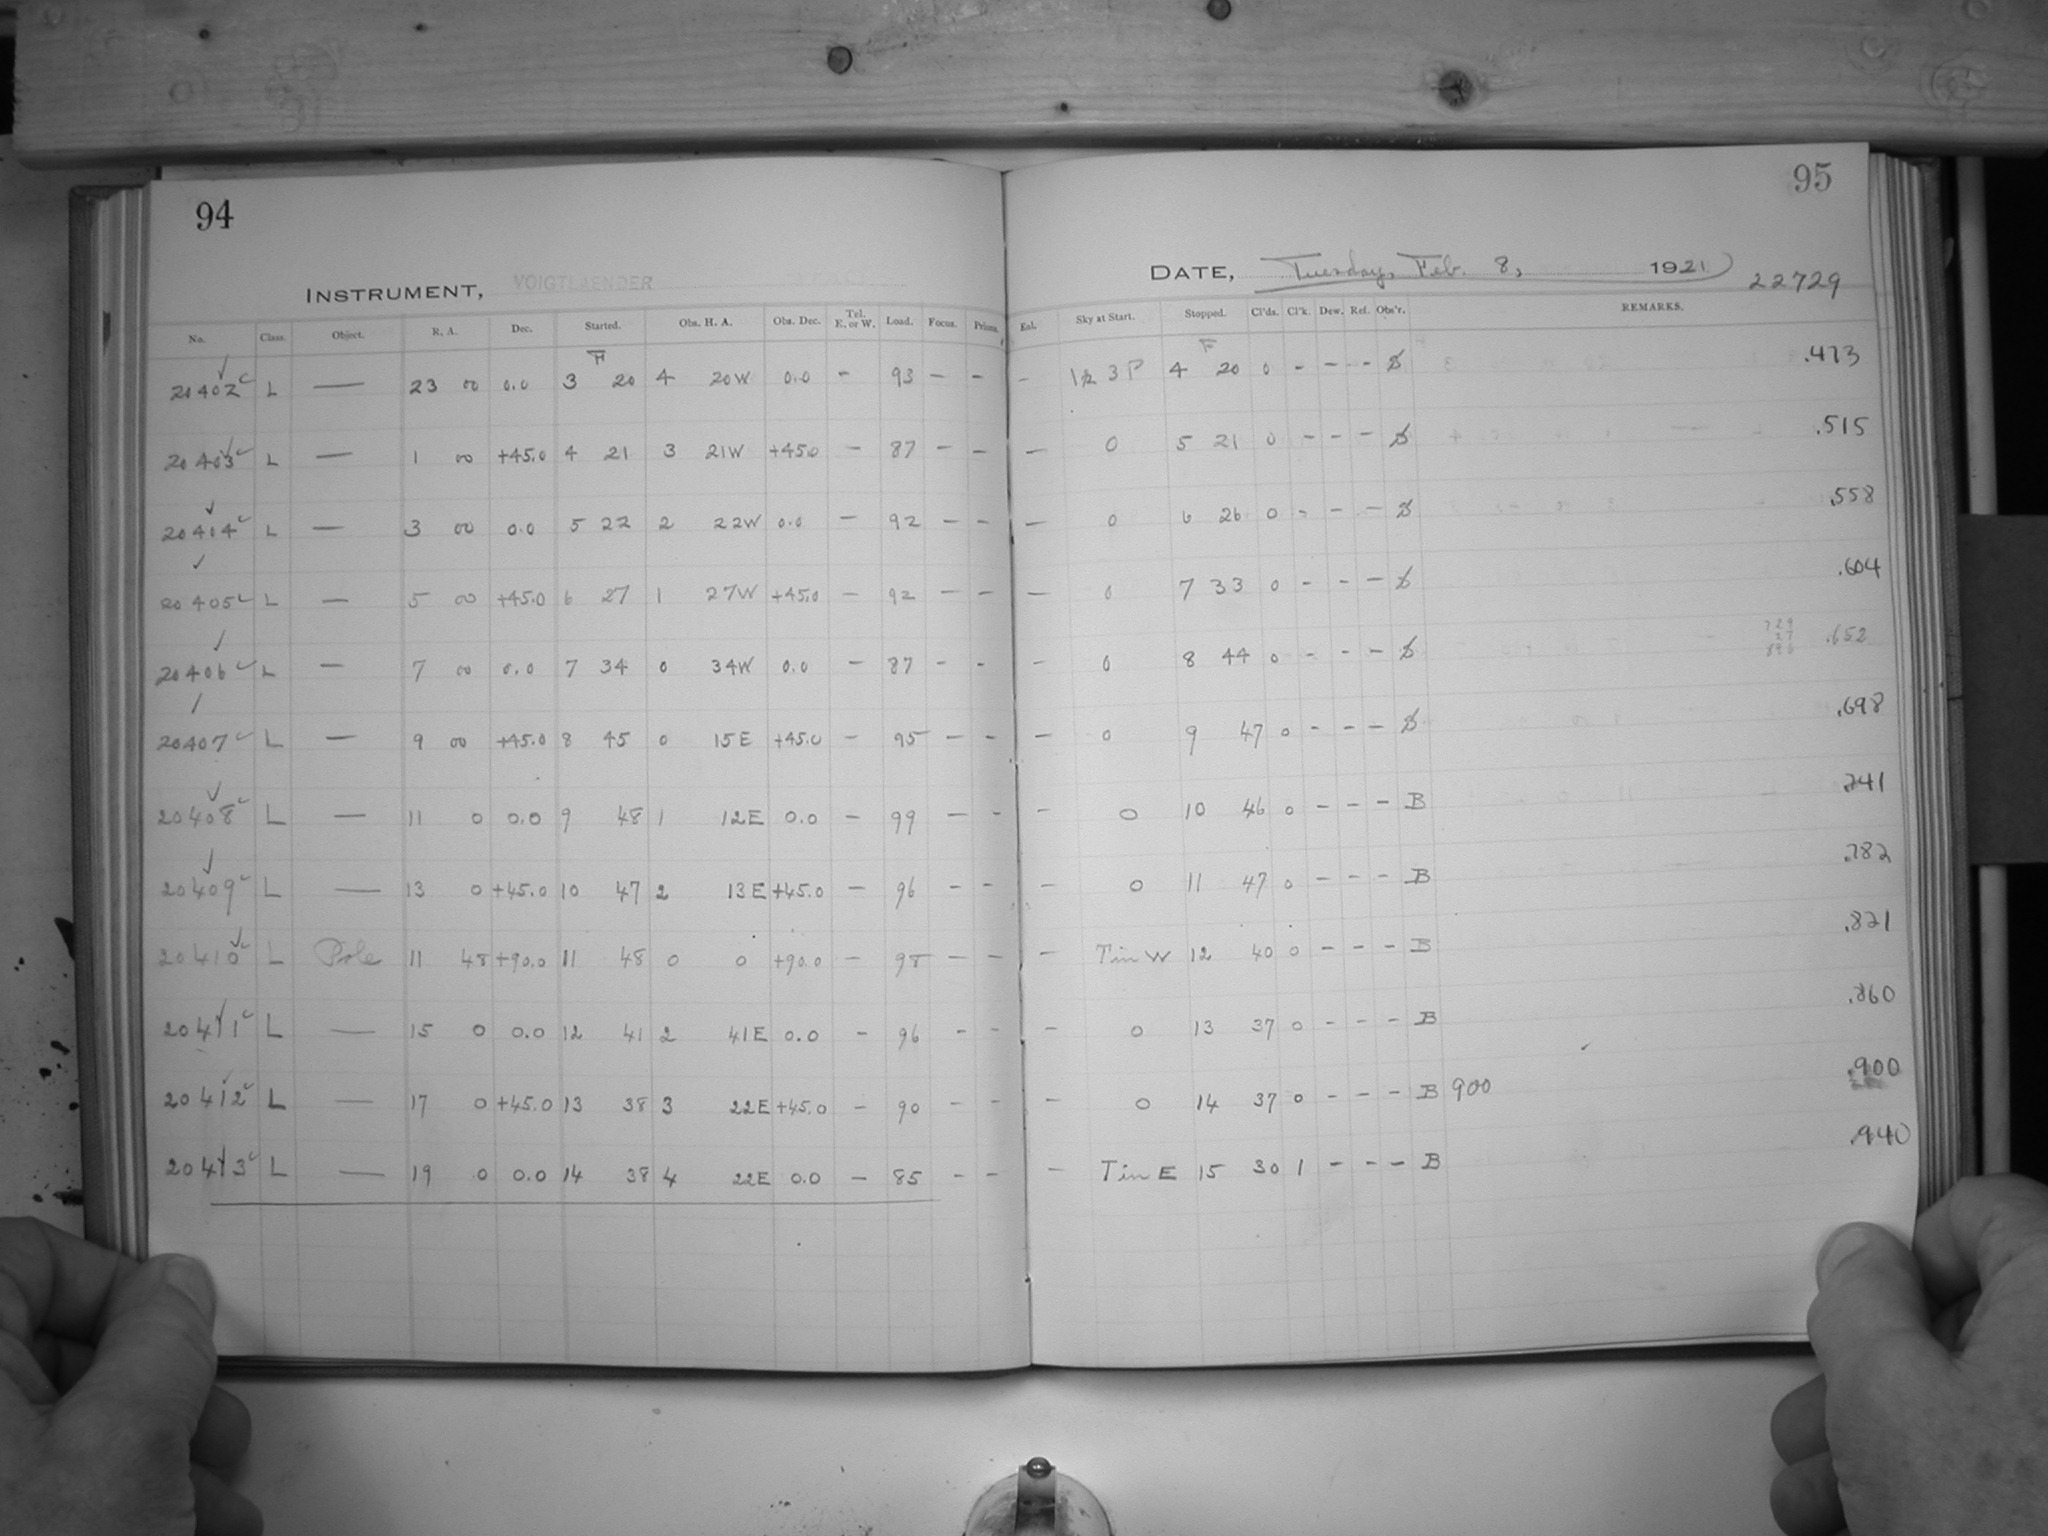 94
95
INSTRUMENT, VOIGTLAENDER
DATE, Tuesday, Feb. 8, 1921
22729
No. Class. Object. R. A. Dec. Started. Obs. H. A. Obs. Dec. Tel. E. or W. Load. Focus. Prisms. Enl. Sky at Start. Stopped. Cl'ds. Cl'k. Dew. Ref. Obs'r. REMARKS.
F F
20402 L — 23 00 0.0 3 20 4 20W 0.0 - 93 - - - 3 P 4 20 0 - - - - .473
20403 L — 1 00 +45.0 4 21 3 21W +45.0 - 87 - - - 0 5 21 0 - - - .515
20404 L — 3 00 0.0 5 22 2 22W 0.0 - 92 - - - 0 6 26 0 - - - .558
20405 L — 5 00 +45.0 6 27 1 27W +45.0 - 92 - - - 0 7 33 0 - - - .604
20406 L — 7 00 0.0 7 34 0 34W 0.0 - 87 - - - 0 8 44 0 - - - .652
20407 L — 9 00 +45.0 8 45 0 15E +45.0 - 95 - - - 0 9 47 0 - - - .698
20408 L — 11 0 0.0 9 48 1 12E 0.0 - 99 - - - 0 10 46 0 - - - B .741
20409 L — 13 0 +45.0 10 47 2 13E +45.0 - 96 - - - 0 11 47 0 - - - B .782
20410 L Pole 11 48 +90.0 11 48 0 0 +90.0 - 98 - - - Tin W 12 40 0 - - - B .821
20411 L — 15 0 0.0 12 41 2 41E 0.0 - 96 - - - 0 13 37 0 - - - B .860
20412 L — 17 0 +45.0 13 38 3 22E +45.0 - 90 - - - 0 14 37 0 - - - B 900 .900
20413 L — 19 0 0.0 14 38 4 22E 0.0 - 85 - - - Tin E 15 30 1 - - - B .940